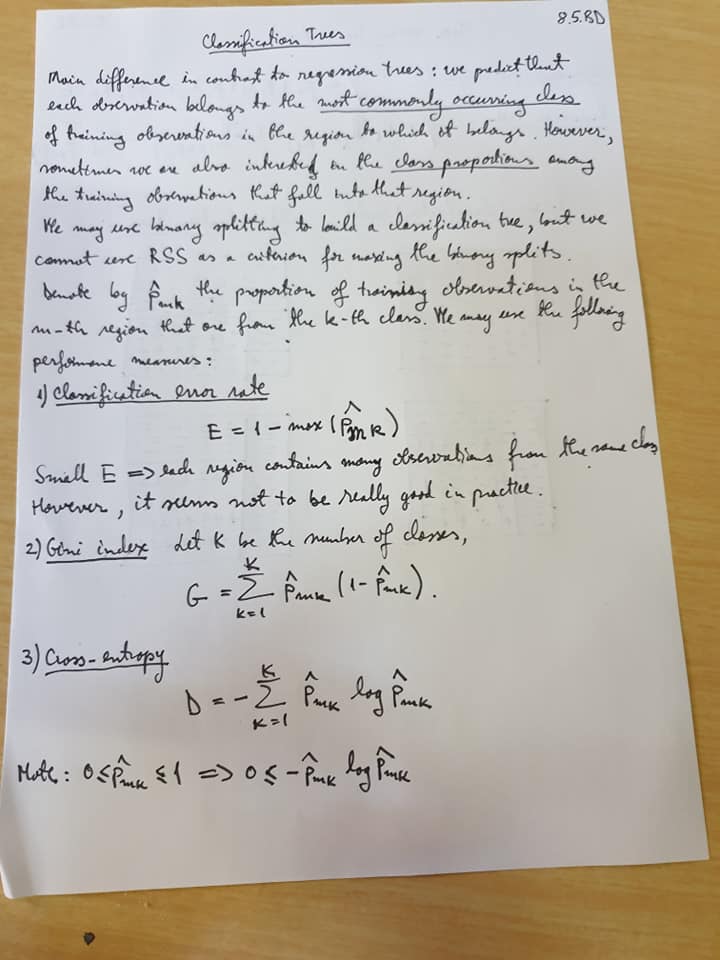 8.5.BD
Classification Trees
Main difference in contrast to regression trees: we predict that
each observation belongs to the most commonly occurring class
of training observations in the region to which it belongs. However,
sometimes we are also interested in the class proportions among
the training observations that fall into that region.
We may use binary splitting to build a classification tree, but we
cannot use RSS as a criterion for making the binary splits.
Denote by p̂mk the proportion of training observations in the
m-th region that are from the k-th class. We may use the following
performance measures:
1) Classification error rate
E = 1 - max (p̂mk)
Small E => each region contains many observations from the same class
However, it seems not to be really good in practice.
2) Gini index Let K be the number of classes,
G = Σ_{k=1}^{K} p̂mk (1 - p̂mk).
3) Cross-entropy
D = - Σ_{k=1}^{K} p̂mk log p̂mk
Note: 0 ≤ p̂mk ≤ 1 => 0 ≤ - p̂mk log p̂mk